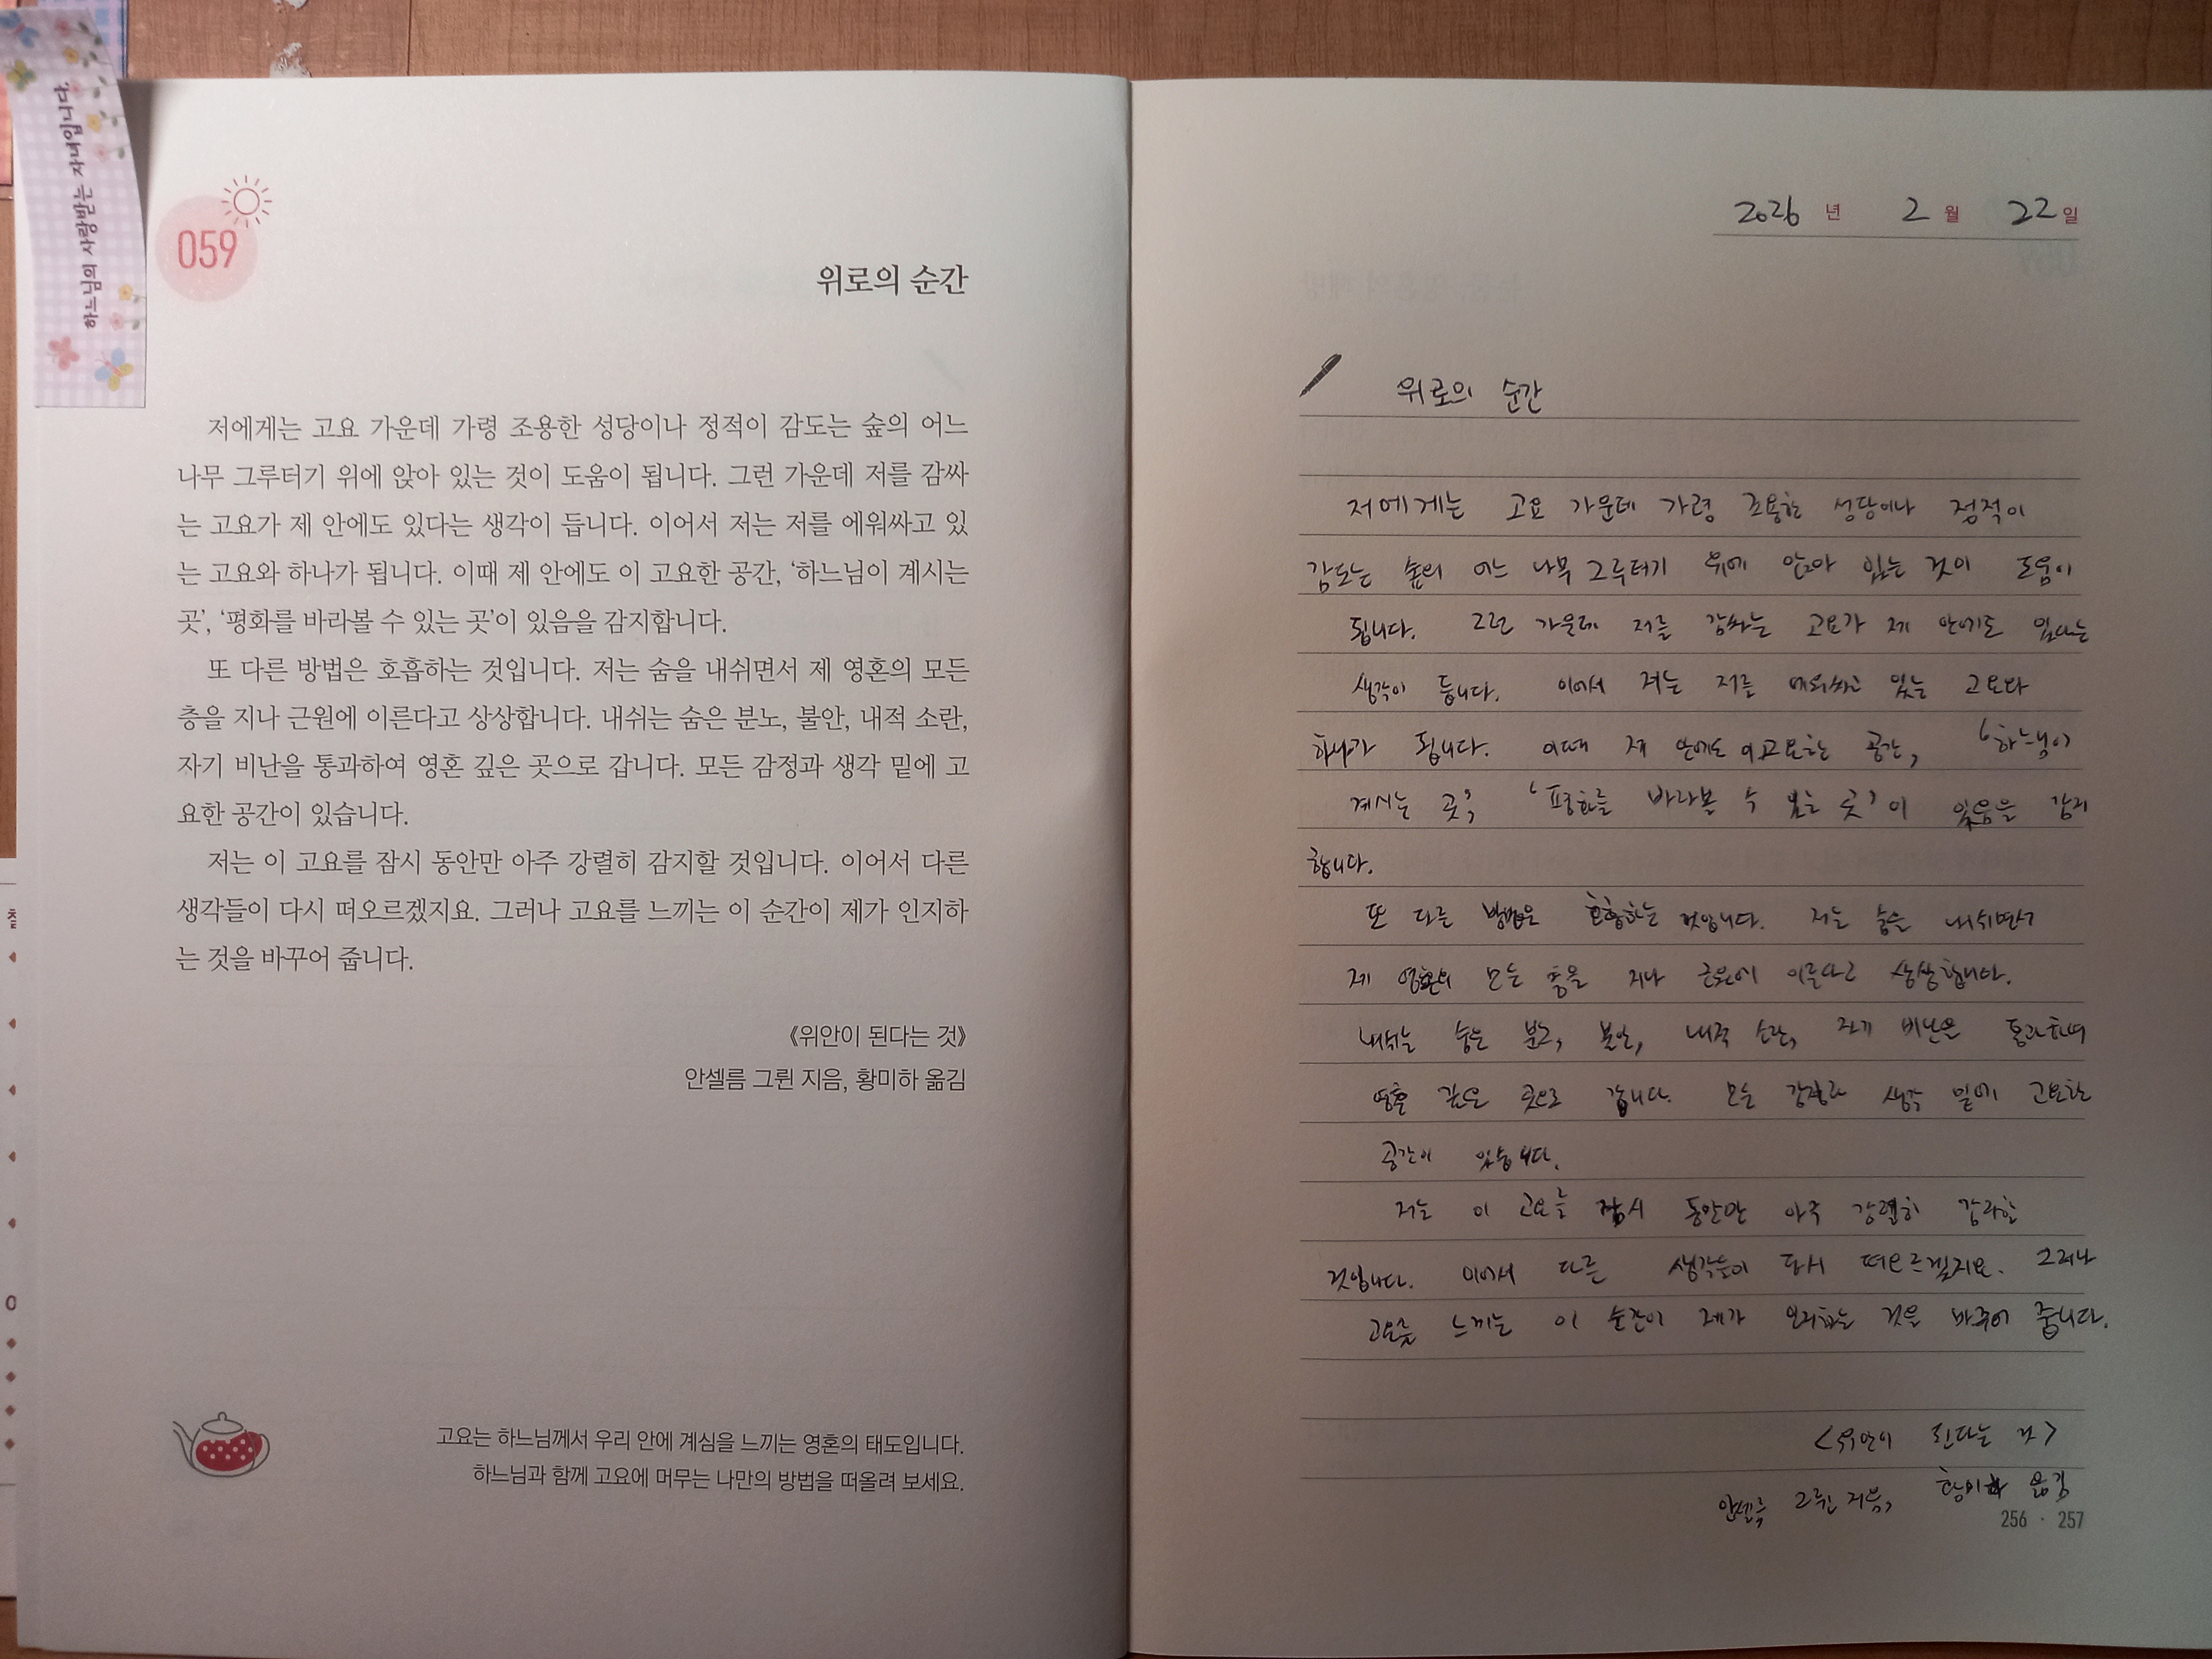 하느님의 사랑받는 자녀입니다.
059
위로의 순간
저에게는 고요 가운데 가령 조용한 성당이나 정적이 감도는 숲의 어느
나무 그루터기 위에 앉아 있는 것이 도움이 됩니다. 그런 가운데 저를 감싸
는 고요가 제 안에도 있다는 생각이 듭니다. 이어서 저는 저를 에워싸고 있
는 고요와 하나가 됩니다. 이때 제 안에도 이 고요한 공간, ‘하느님이 계시는
곳’, ‘평화를 바라볼 수 있는 곳’이 있음을 감지합니다.
또 다른 방법은 호흡하는 것입니다. 저는 숨을 내쉬면서 제 영혼의 모든
층을 지나 근원에 이른다고 상상합니다. 내쉬는 숨은 분노, 불안, 내적 소란,
자기 비난을 통과하여 영혼 깊은 곳으로 갑니다. 모든 감정과 생각 밑에 고
요한 공간이 있습니다.
저는 이 고요를 잠시 동안만 아주 강렬히 감지할 것입니다. 이어서 다른
생각들이 다시 떠오르겠지요. 그러나 고요를 느끼는 이 순간이 제가 인지하
는 것을 바꾸어 줍니다.
《위안이 된다는 것》
안셀름 그륀 지음, 황미하 옮김
고요는 하느님께서 우리 안에 계심을 느끼는 영혼의 태도입니다.
하느님과 함께 고요에 머무는 나만의 방법을 떠올려 보세요.
2026 년 2 월 22 일
위로의 순간
저에게는 고요 가운데 가령 조용한 성당이나 정적이
감도는 숲의 어느 나무 그루터기 위에 앉아 있는 것이 도움이
됩니다. 그런 가운데 저를 감싸는 고요가 제 안에도 있다는
생각이 듭니다. 이어서 저는 저를 에워싸고 있는 고요와
하나가 됩니다. 이때 제 안에도 이 고요한 공간, ‘하느님이
계시는 곳’, ‘평화를 바라볼 수 있는 곳’이 있음을 감지
합니다.
또 다른 방법은 호흡하는 것입니다. 저는 숨을 내쉬면서
제 영혼의 모든 층을 지나 근원에 이른다고 상상합니다.
내쉬는 숨은 분노, 불안, 내적 소란, 자기 비난을 통과하여
영혼 깊은 곳으로 갑니다. 모든 감정과 생각 밑에 고요한
공간이 있습니다.
저는 이 고요를 잠시 동안만 아주 강렬히 감지할
것입니다. 이어서 다른 생각들이 다시 떠오르겠지요. 그러나
고요를 느끼는 이 순간이 제가 인지하는 것을 바꾸어 줍니다.
<위안이 된다는 것>
안셀름 그륀 지음, 황미하 옮김
256 · 257